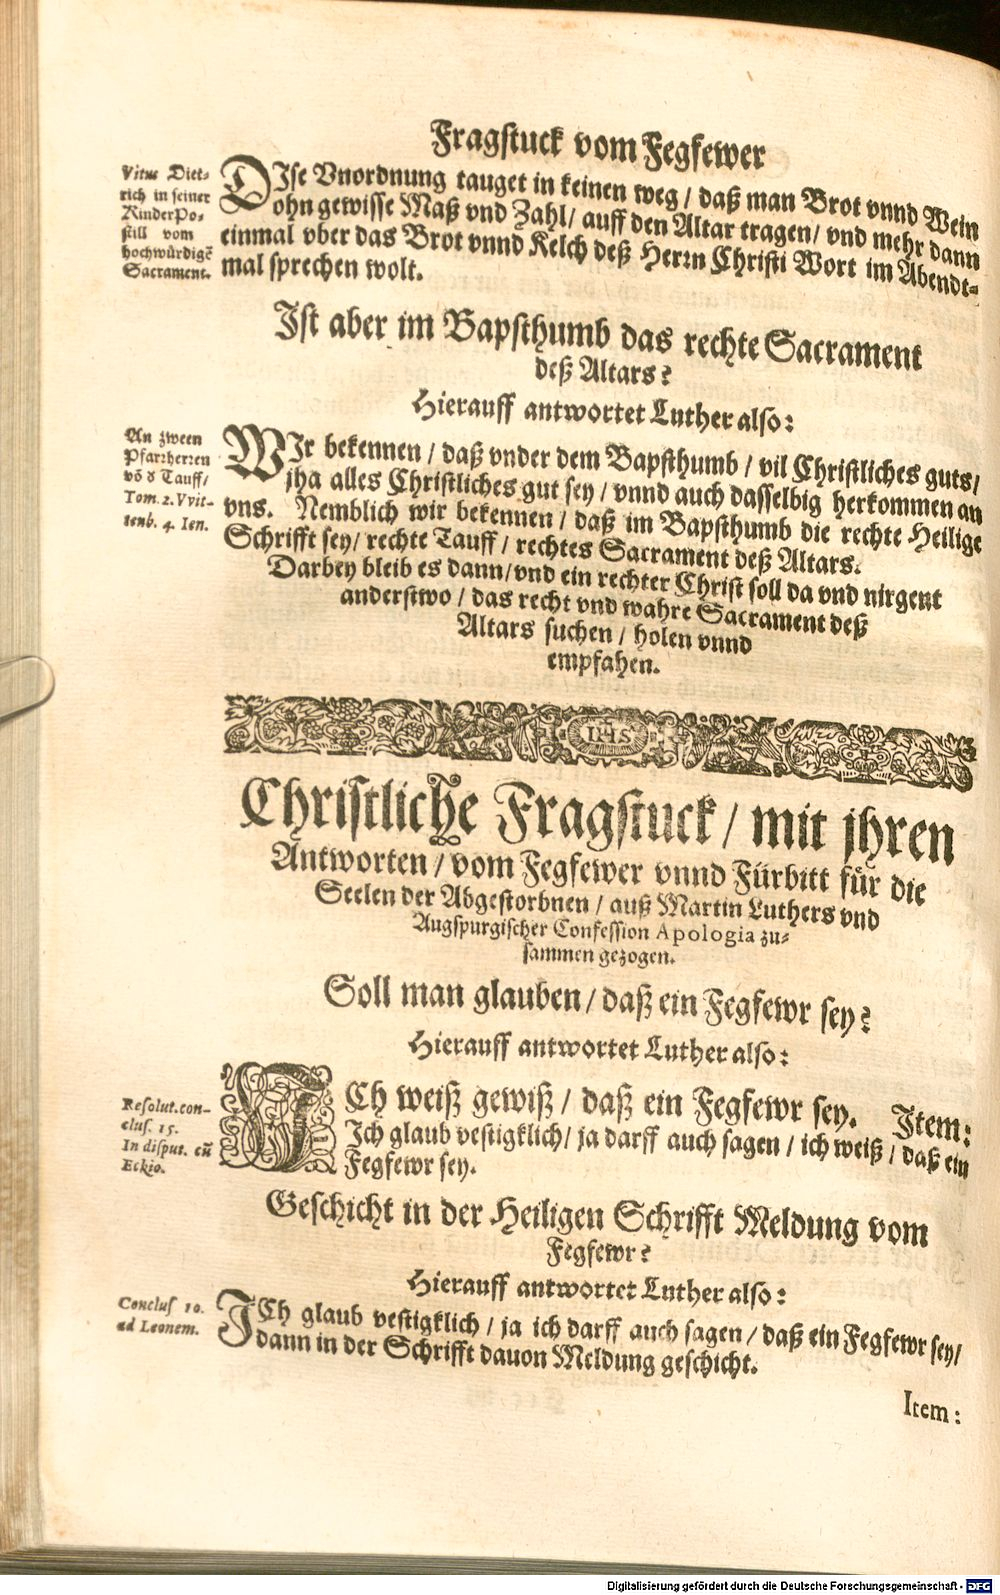 Fragstuck vom Fegfewer
Vitus Diet-
rich in seiner
KinderPo-
still vom
hochwürdigẽ
Sacrament.
DIse Vnordnung tauget in keinen weg / daß man Brot vnnd Wein
ohn gewisse Maß vnd Zahl / auff den Altar tragen / vnd mehr dann
einmal vber das Brot vnnd Kelch deß Herrn Christi Wort im Abendt-
mal sprechen wolt.
Ist aber im Bapsthumb das rechte Sacrament
deß Altars?
Hierauff antwortet Luther also:
An zween
Pfarrherren
võ d Tauff /
Tom. 2. Vvit-
tenb. 4. Ien.
WIr bekennen / daß vnder dem Bapsthumb / vil Christliches guts /
jha alles Christliches gut sey / vnnd auch dasselbig herkommen an
vns. Nemblich wir bekennen / daß im Bapsthumb die rechte Heilige
Schrifft sey / rechte Tauff / rechtes Sacrament deß Altars.
Darbey bleib es dann / vnd ein rechter Christ soll da vnd nirgent
anderstwo / das recht vnd wahre Sacrament deß
Altars suchen / holen vnnd
empfahen.
IHS
Christliche Fragstuck / mit jhren
Antworten / vom Fegfewer vnnd Fürbitt für die
Seelen der Abgestorbnen / auß Martin Luthers vnd
Augspurgischer Confession Apologia zu-
sammen gezogen.
Soll man glauben / daß ein Fegfewr sey?
Hierauff antwortet Luther also:
Resolut. con-
clus. 15.
In disput. cũ
Eckio.
ICh weiß gewiß / daß ein Fegfewr sey. Item:
Ich glaub vestigklich / ja darff auch sagen / ich weiß / daß ein
Fegfewr sey.
Geschicht in der Heiligen Schrifft Meldung vom
Fegfewr?
Hierauff antwortet Luther also:
Conclus 10.
ad Leonem.
ICh glaub vestigklich / ja ich darff auch sagen / daß ein Fegfewr sey /
dann in der Schrifft dauon Meldung geschicht.
Item:
Digitalisierung gefördert durch die Deutsche Forschungsgemeinschaft - DFG